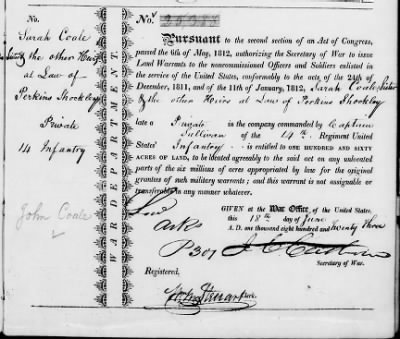 Sarah Coale
the other Heirs
at Law of
Perkins Shockley
Private
14 Infantry
John Coale
WAR DEPARTMENT.
No.
Pursuant to the second section of an Act of Congress,
passed the 6th of May, 1812, authorizing the Secretary of War to issue
Land Warrants to the noncommissioned Officers and Soldiers enlisted
in the service of the United States, conformably to the acts of the 24th of
December, 1811, and of the 11th of January, 1812, Sarah Coale Sister
& the other Heirs at Law of Perkins Shockley
late a Private in the company commanded by Captain
Sullivan of the 14th Regiment United
States' Infantry is entitled to ONE HUNDRED AND SIXTY
ACRES OF LAND, to be located agreeably to the said act on any unlocated
parts of the six millions of acres appropriated by law for the original
grantees of such military warrants; and this warrant is not assignable or
transferable in any manner whatever.
GIVEN at the War Office, of the United States,
this 18th day of June
A. D. one thousand eight hundred and twenty three
Ark
P 301
J C Calhoun
Secretary of War.
Registered,
Clerk.